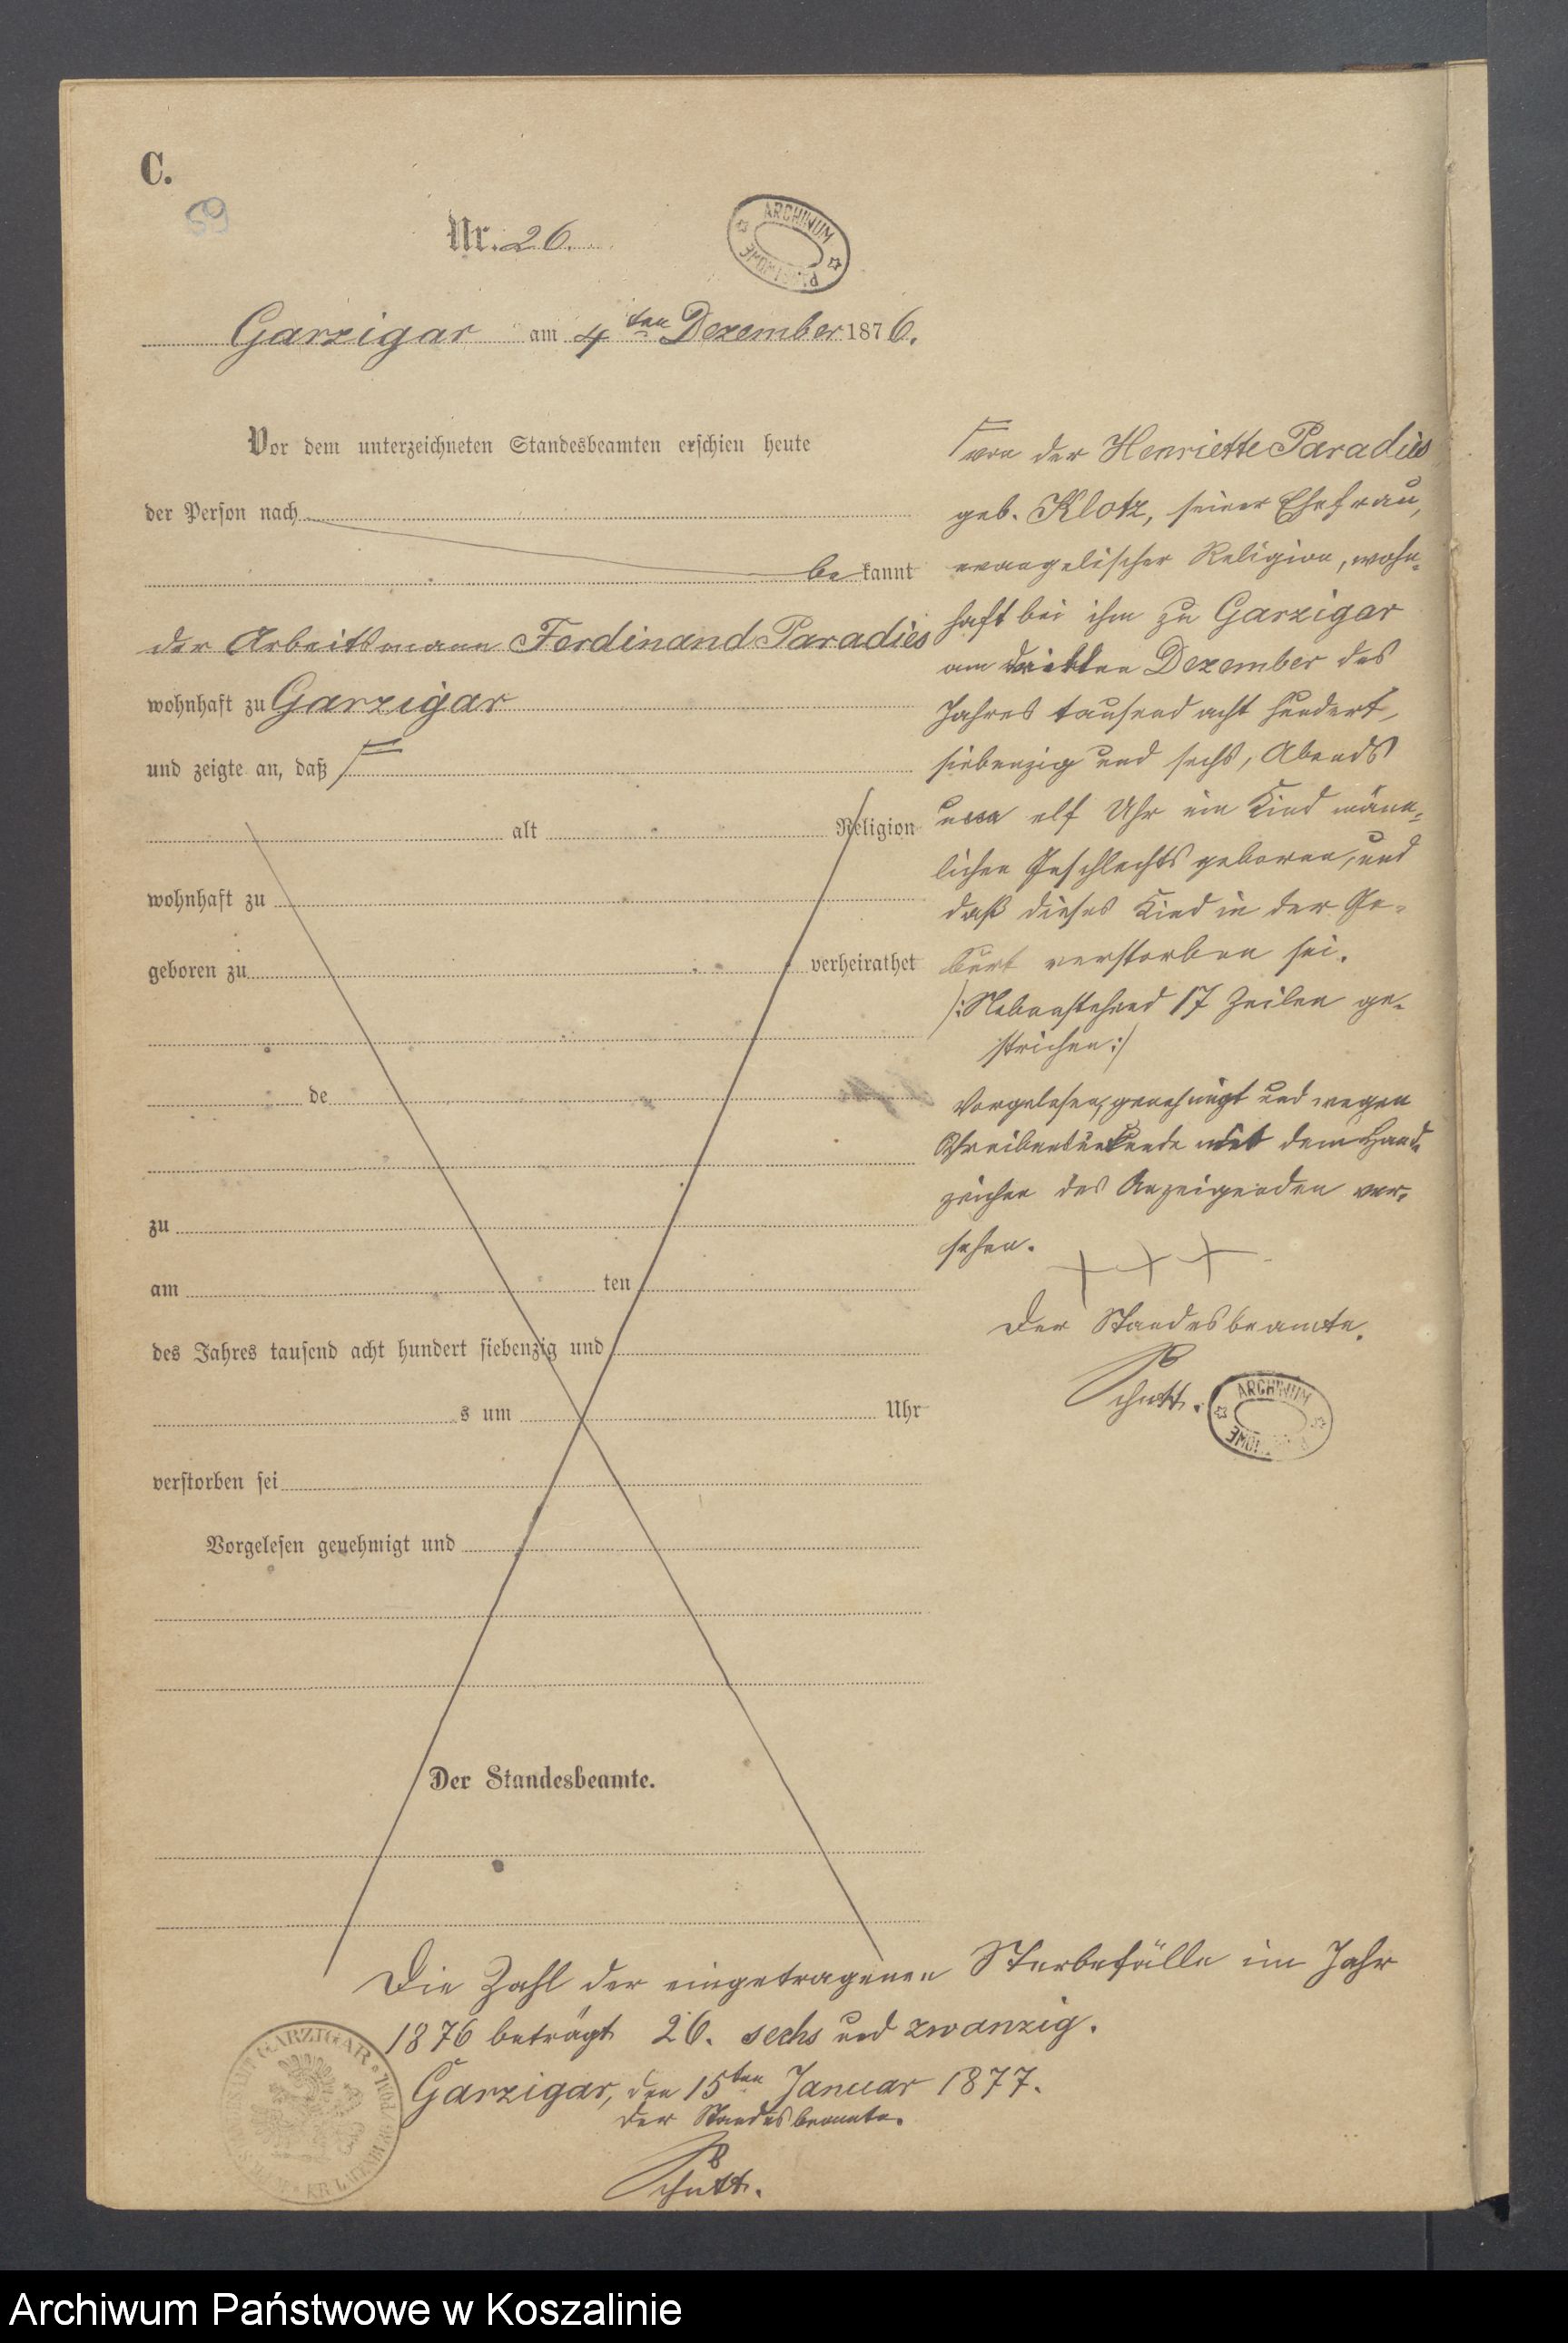 C.
59
Nr. 26.
ARCHIWUM PAŃSTWOWE
Garzigar am 4ten Dezember 1876.
Vor dem unterzeichneten Standesbeamten erschien heute
der Person nach
be kannt
der Arbeitsmann Ferdinand Paradies
wohnhaft zu Garzigar
und zeigte an, daß
alt Religion
wohnhaft zu
geboren zu verheirathet
de
zu
am ten
des Jahres tausend acht hundert siebenzig und
s um Uhr
verstorben sei
Vorgelesen genehmigt und
Der Standesbeamte.
von der Henriette Paradies
geb. Klotz, seiner Ehefrau,
evangelischer Religion, wohn-
haft bei ihm zu Garzigar
am dritten Dezember des
Jahres tausend acht hundert
siebenzig und sechs, Abends
um elf Uhr ein Kind männ-
lichen Geschlechts geboren, und
daß dieses Kind in der Ge-
burt verstorben sei.
/:Nebenstehend 17 Zeilen ge-
strichen:/
Vorgelesen, genehmigt und wegen
Schreibensunkunde mit dem Hand-
zeichen des Anzeigenden ver-
sehen.
+ + +
Der Standesbeamte.
Schutt.
ARCHIWUM
Die Zahl der eingetragenen Sterbefälle im Jahr
1876 beträgt 26. sechs und zwanzig.
Garzigar, den 15ten Januar 1877.
Der Standesbeamte.
Schutt.
GARZIGAR KR. LAUENBURG
Archiwum Państwowe w Koszalinie